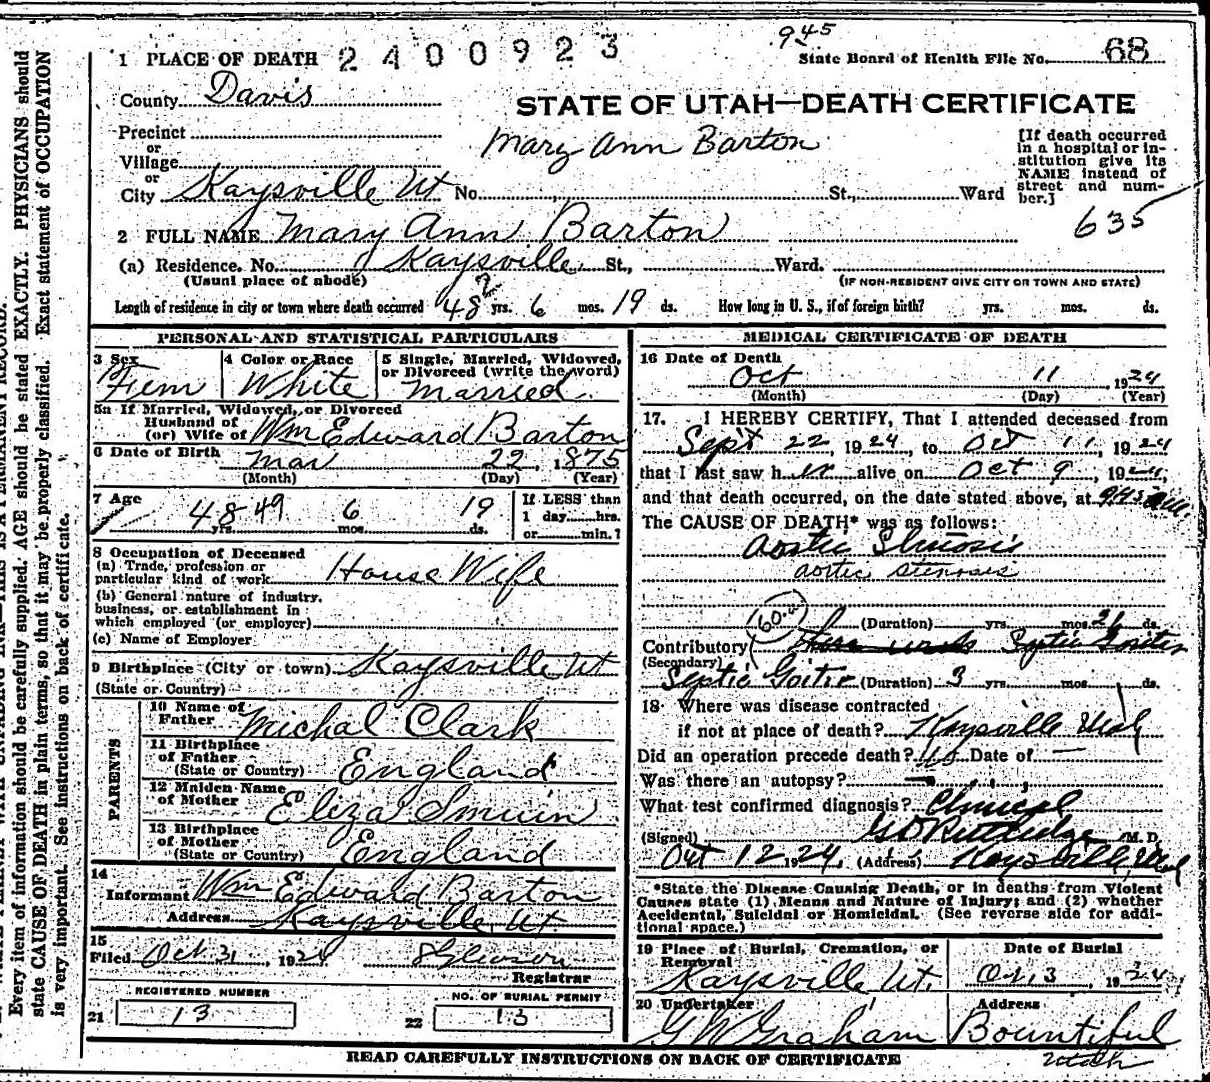 945
1 PLACE OF DEATH 2400923 State Board of Health File No. 68
County Davis
STATE OF UTAH—DEATH CERTIFICATE
Precinct
or
Village
or
City Kaysville Ut No. St., Ward
Mary Ann Barton
[If death occurred
in a hospital or in-
stitution give its
NAME instead of
street and num-
ber.]
635
2 FULL NAME Mary Ann Barton
(a) Residence. No. Kaysville St., Ward.
(Usual place of abode) (IF NON-RESIDENT GIVE CITY OR TOWN AND STATE)
Length of residence in city or town where death occurred 48 yrs. 6 mos. 19 ds. How long in U. S., if of foreign birth? yrs. mos. ds.
PERSONAL AND STATISTICAL PARTICULARS
3 Sex 4 Color or Race 5 Single, Married, Widowed,
or Divorced (write the word)
Fem White Married
5a If Married, Widowed, or Divorced
Husband of
(or) Wife of Wm Edward Barton
6 Date of Birth Mar 22, 1875
(Month) (Day) (Year)
7 Age 48 49 yrs. 6 mos. 19 ds. If LESS than
1 day......hrs.
or......min.?
8 Occupation of Deceased
(a) Trade, profession or
particular kind of work House Wife
(b) General nature of industry,
business, or establishment in
which employed (or employer)
(c) Name of Employer
9 Birthplace (City or town) Kaysville Ut
(State or Country)
PARENTS
10 Name of
Father Michal Clark
11 Birthplace
of Father England
(State or Country)
12 Maiden Name
of Mother Eliza Smuin
13 Birthplace
of Mother England
(State or Country)
14
Informant Wm Edward Barton
Address Kaysville Ut
15
Filed Oct 31, 1924
Registrar
REGISTERED NUMBER
21 13
NO. OF BURIAL PERMIT
22 13
MEDICAL CERTIFICATE OF DEATH
16 Date of Death
Oct 11, 1924
(Month) (Day) (Year)
17. I HEREBY CERTIFY, That I attended deceased from
Sept 22, 1924, to Oct 11, 1924
that I last saw her alive on Oct 9, 1924,
and that death occurred, on the date stated above, at 945 am.
The CAUSE OF DEATH* was as follows:
Aortic Stenosis
aortic stenosis
(Duration) yrs. mos. ds.
60
Contributory Septic Goiter
(Secondary)
Septic Goiter (Duration) 3 yrs. mos. ds.
18 Where was disease contracted
if not at place of death? Kaysville Utah
Did an operation precede death? Date of —
Was there an autopsy?
What test confirmed diagnosis? Clinical
(Signed) G D Rutledge M. D.
Oct 12 1924, (Address) Kaysville, Utah
*State the Disease Causing Death, or in deaths from Violent
Causes state (1) Means and Nature of Injury; and (2) whether
Accidental, Suicidal or Homicidal. (See reverse side for addi-
tional space.)
19 Place of Burial, Cremation, or
Removal
Date of Burial
Kaysville Ut. 1924
20 Undertaker Address
G W Graham Bountiful
Utah
READ CAREFULLY INSTRUCTIONS ON BACK OF CERTIFICATE
Every item of information should be carefully supplied. AGE should be stated EXACTLY. PHYSICIANS should
state CAUSE OF DEATH in plain terms, so that it may be properly classified. Exact statement of OCCUPATION
is very important. See instructions on back of certificate.